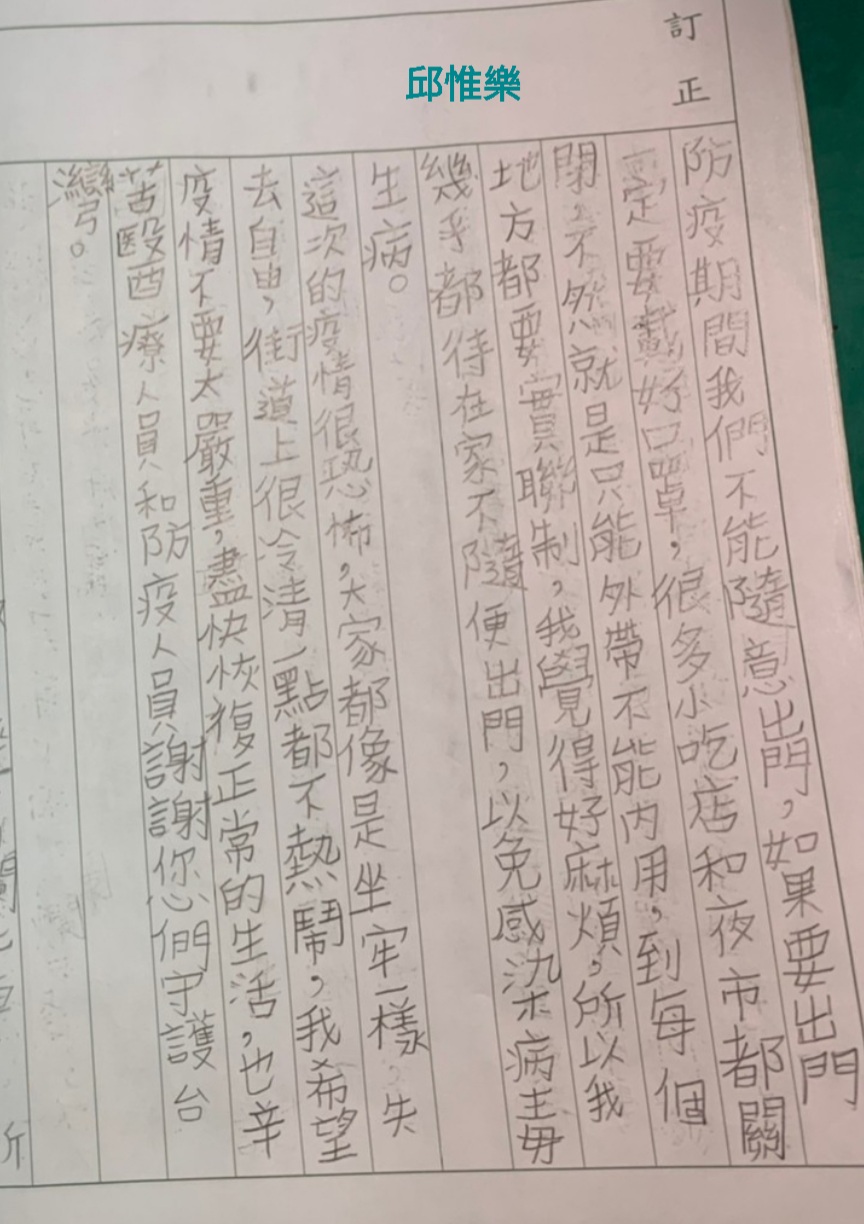 訂正
邱惟樂
防疫期間我們不能隨意出門，如果要出門
一定要戴好口罩，很多小吃店和夜市都關
閉，不然就是只能外帶不能內用，到每個
地方都要實聯制，我覺得好麻煩，所以我
幾乎都待在家不隨便出門，以免感染病毒
生病。
這次的疫情很恐怖，大家都像是坐牢一樣，失
去自由，街道上很冷清一點都不熱鬧，我希望
疫情不要太嚴重，盡快恢復正常的生活，也辛
苦醫療人員和防疫人員謝謝您們守護台
灣。